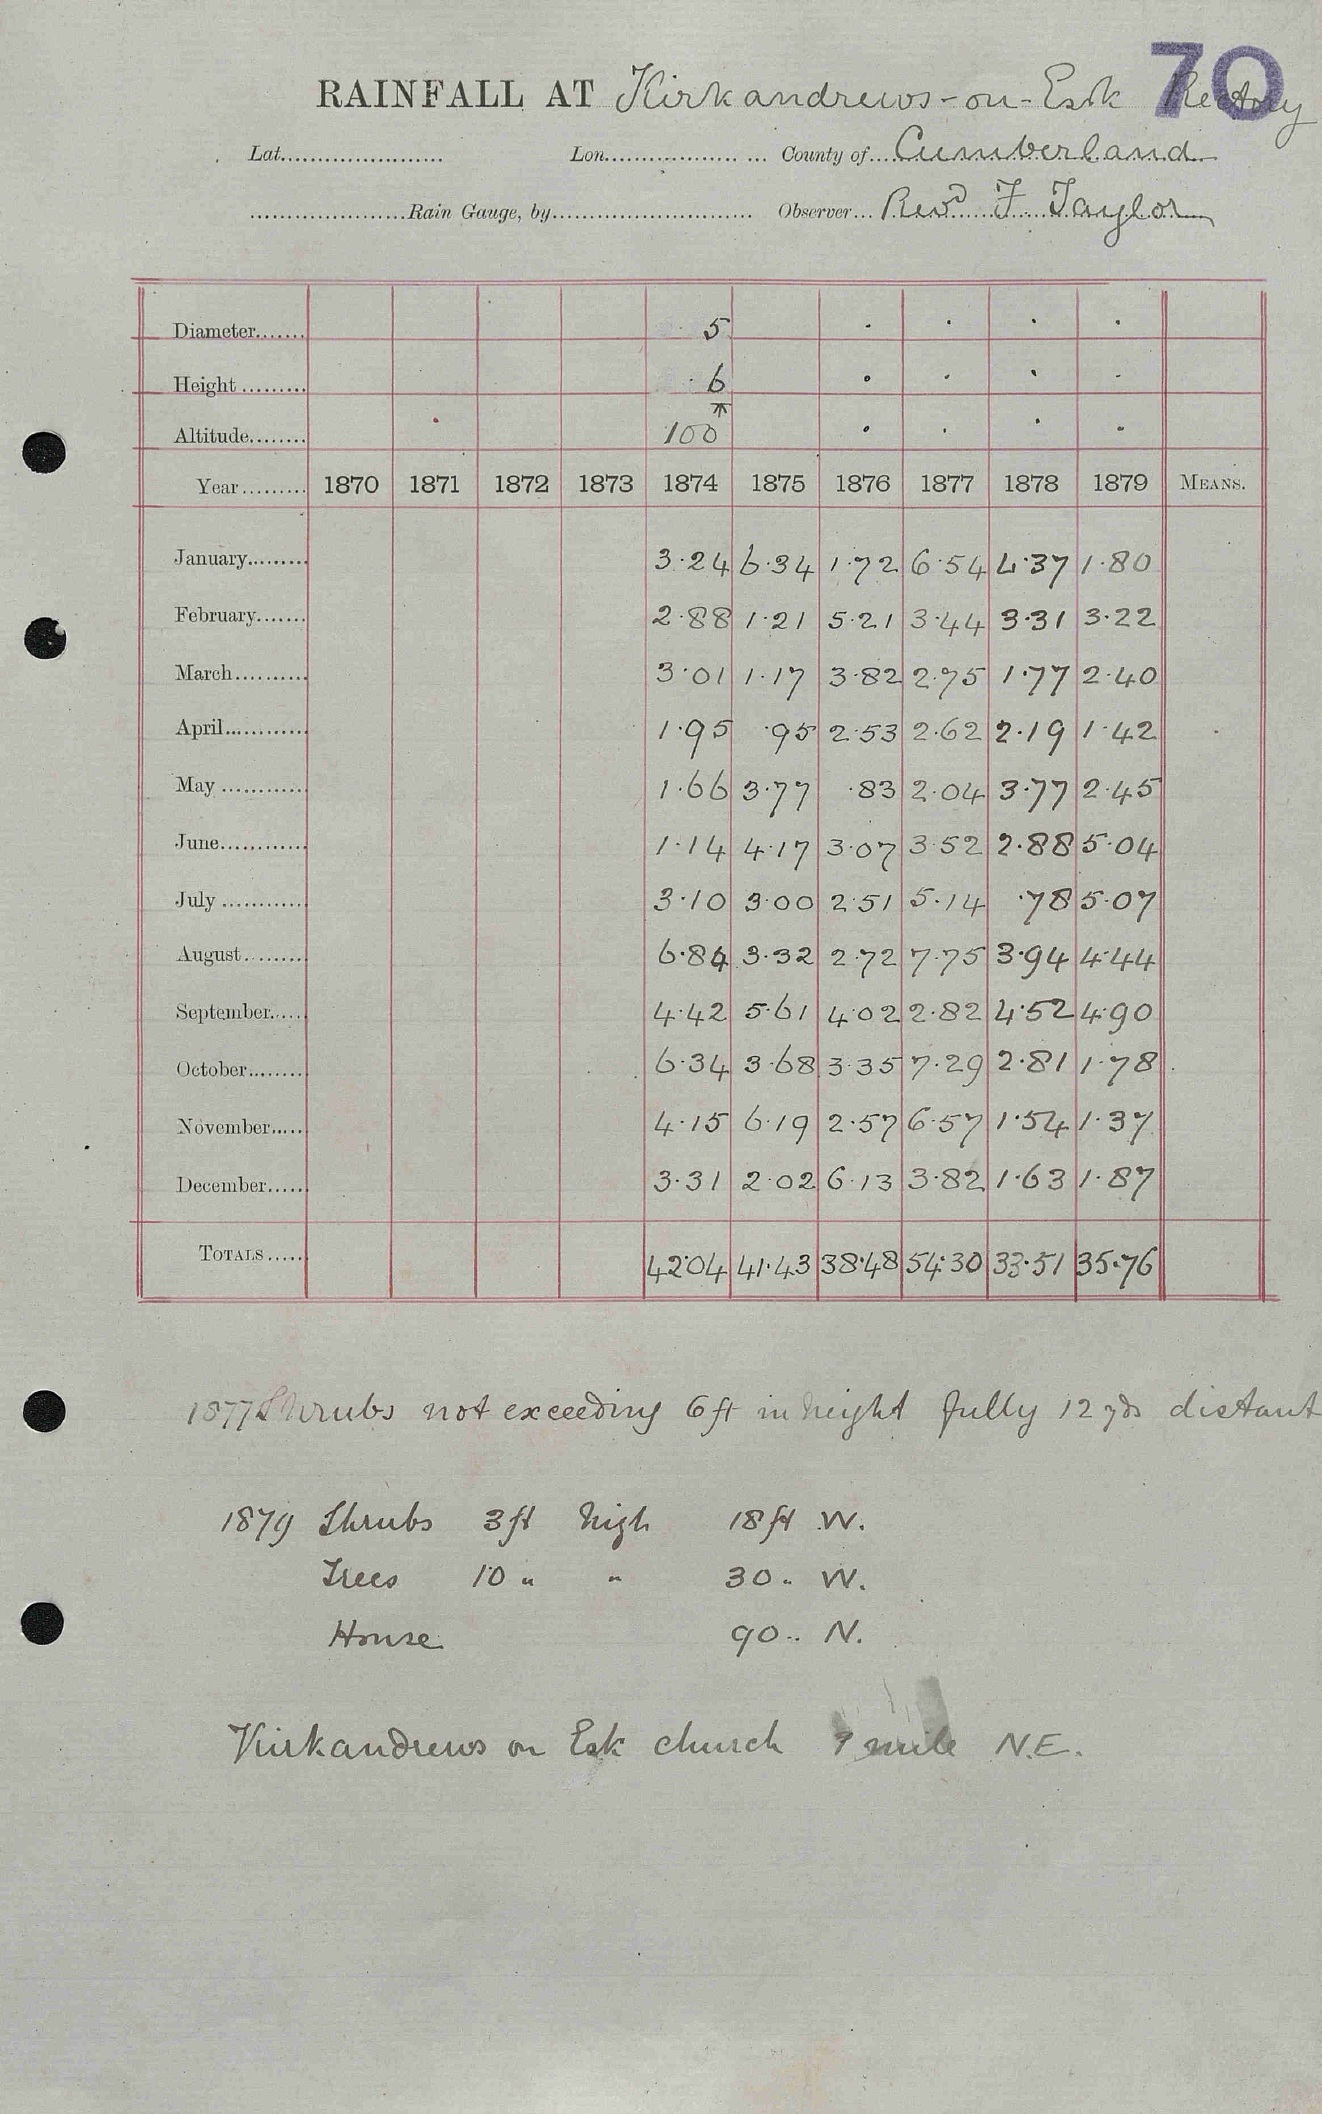 70
RAINFALL AT Kirkandrews-on-Esk Rectory
Lat. Lon. County of Cumberland
Rain Gauge, by Observer Revd F Taylor
Diameter 5 . . . .
Height 6 . . . .
Altitude 100 . . . .
Year 1870 1871 1872 1873 1874 1875 1876 1877 1878 1879 MEANS.
January 3.24 6.34 1.72 6.54 4.37 1.80
February 2.88 1.21 5.21 3.44 3.31 3.22
March 3.01 1.17 3.82 2.75 1.77 2.40
April 1.95 .95 2.53 2.62 2.19 1.42
May 1.66 3.77 .83 2.04 3.77 2.45
June 1.14 4.17 3.07 3.52 2.88 5.04
July 3.10 3.00 2.51 5.14 .78 5.07
August 6.84 3.32 2.72 7.75 3.94 4.44
September 4.42 5.61 4.02 2.82 4.52 4.90
October 6.34 3.68 3.35 7.29 2.81 1.78
November 4.15 6.19 2.57 6.57 1.54 1.37
December 3.31 2.02 6.13 3.82 1.63 1.87
TOTALS 42.04 41.43 38.48 54.30 33.51 35.76
1877 Shrubs not exceeding 6 ft in height fully 12 yds distant
1879 Shrubs 3 ft high 18 ft W.
Trees 10 " " 30 " W.
House 90 " N.
Kirkandrews on Esk church mile N.E.